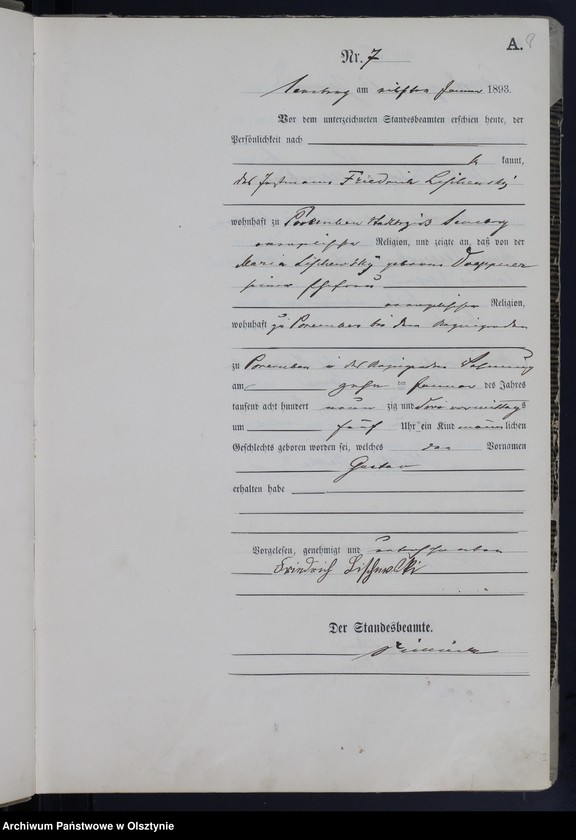 A. 9
Nr. 7
am elften Januar 1893.
Vor dem unterzeichneten Standesbeamten erschien heute, der
Persönlichkeit nach
kannt,
Friedrich Lischewsky
wohnhaft zu
evangelischer Religion, und zeigte an, daß von der
Maria Lischewsky geborene
seiner Ehefrau
evangelischer Religion,
wohnhaft zu bei dem Anzeigenden
zu in des Anzeigenden Wohnung
am zehn ten Januar des Jahres
tausend acht hundert neun zig und drei vormittags
um fünf Uhr ein Kind männlichen
Geschlechts geboren worden sei, welches den Vornamen
Gustav
erhalten habe
Vorgelesen, genehmigt und unterschrieben
Friedrich Lischewski
Der Standesbeamte.
Archiwum Państwowe w Olsztynie